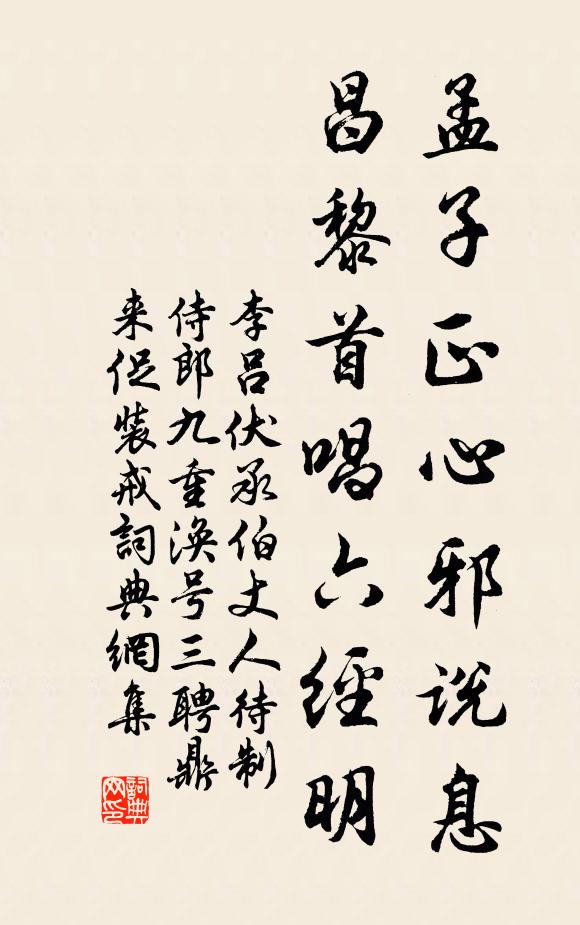 孟子正心邪说息
昌黎首唱六經明
李吕伏承伯丈人待制
侍郎九重渙号三聘鼎
来促装戒詞典網集
詞典
网印